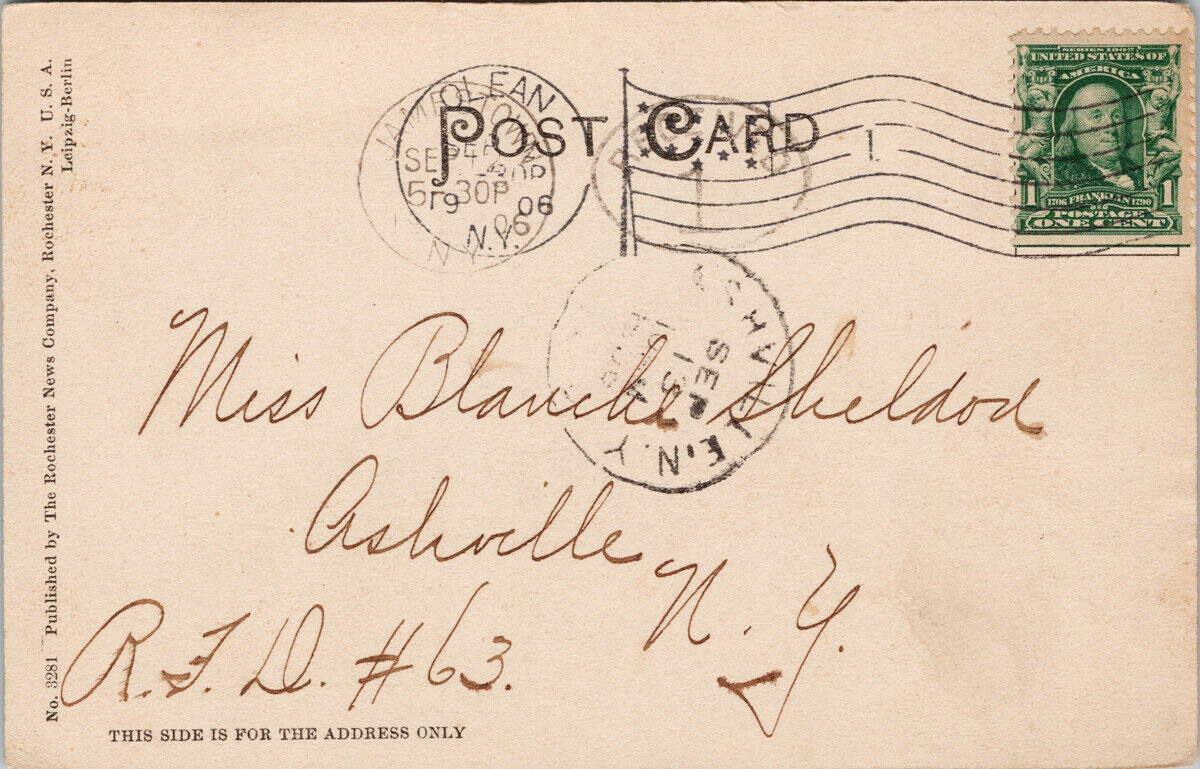 No. 3281 Published by The Rochester News Company, Rochester N. Y. U. S. A.
Leipzig-Berlin
POST CARD
OLEAN
JAMESTOWN
SEP
5 30P
19 06
06
N.Y.
N.Y.
RECEIVED
1
1
SERIES 1902
UNITED STATES OF
AMERICA
1 1
1706 FRANKLIN 1790
POSTAGE
ONE CENT
ASHVILLE, N.Y.
SEP
13
Miss Blanche Sheldod
Ashville
N. Y.
R. F. D. # 63.
THIS SIDE IS FOR THE ADDRESS ONLY